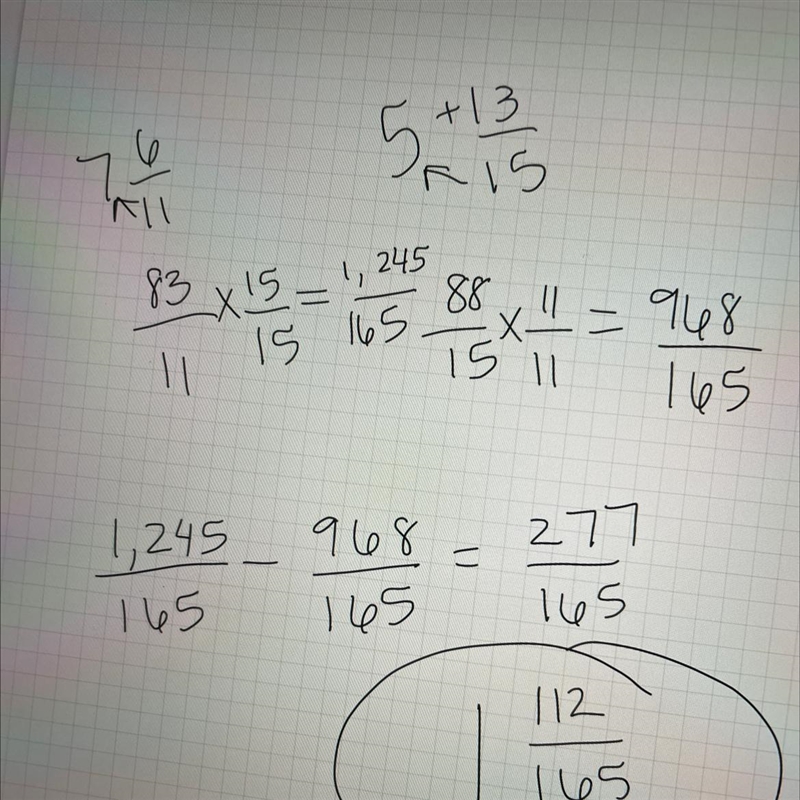 7 6/11 5 + 13/15
83/11 x 15/15 = 1,245/165 88/15 x 11/11 = 968/165
1,245/165 - 968/165 = 277/165
1 112/165